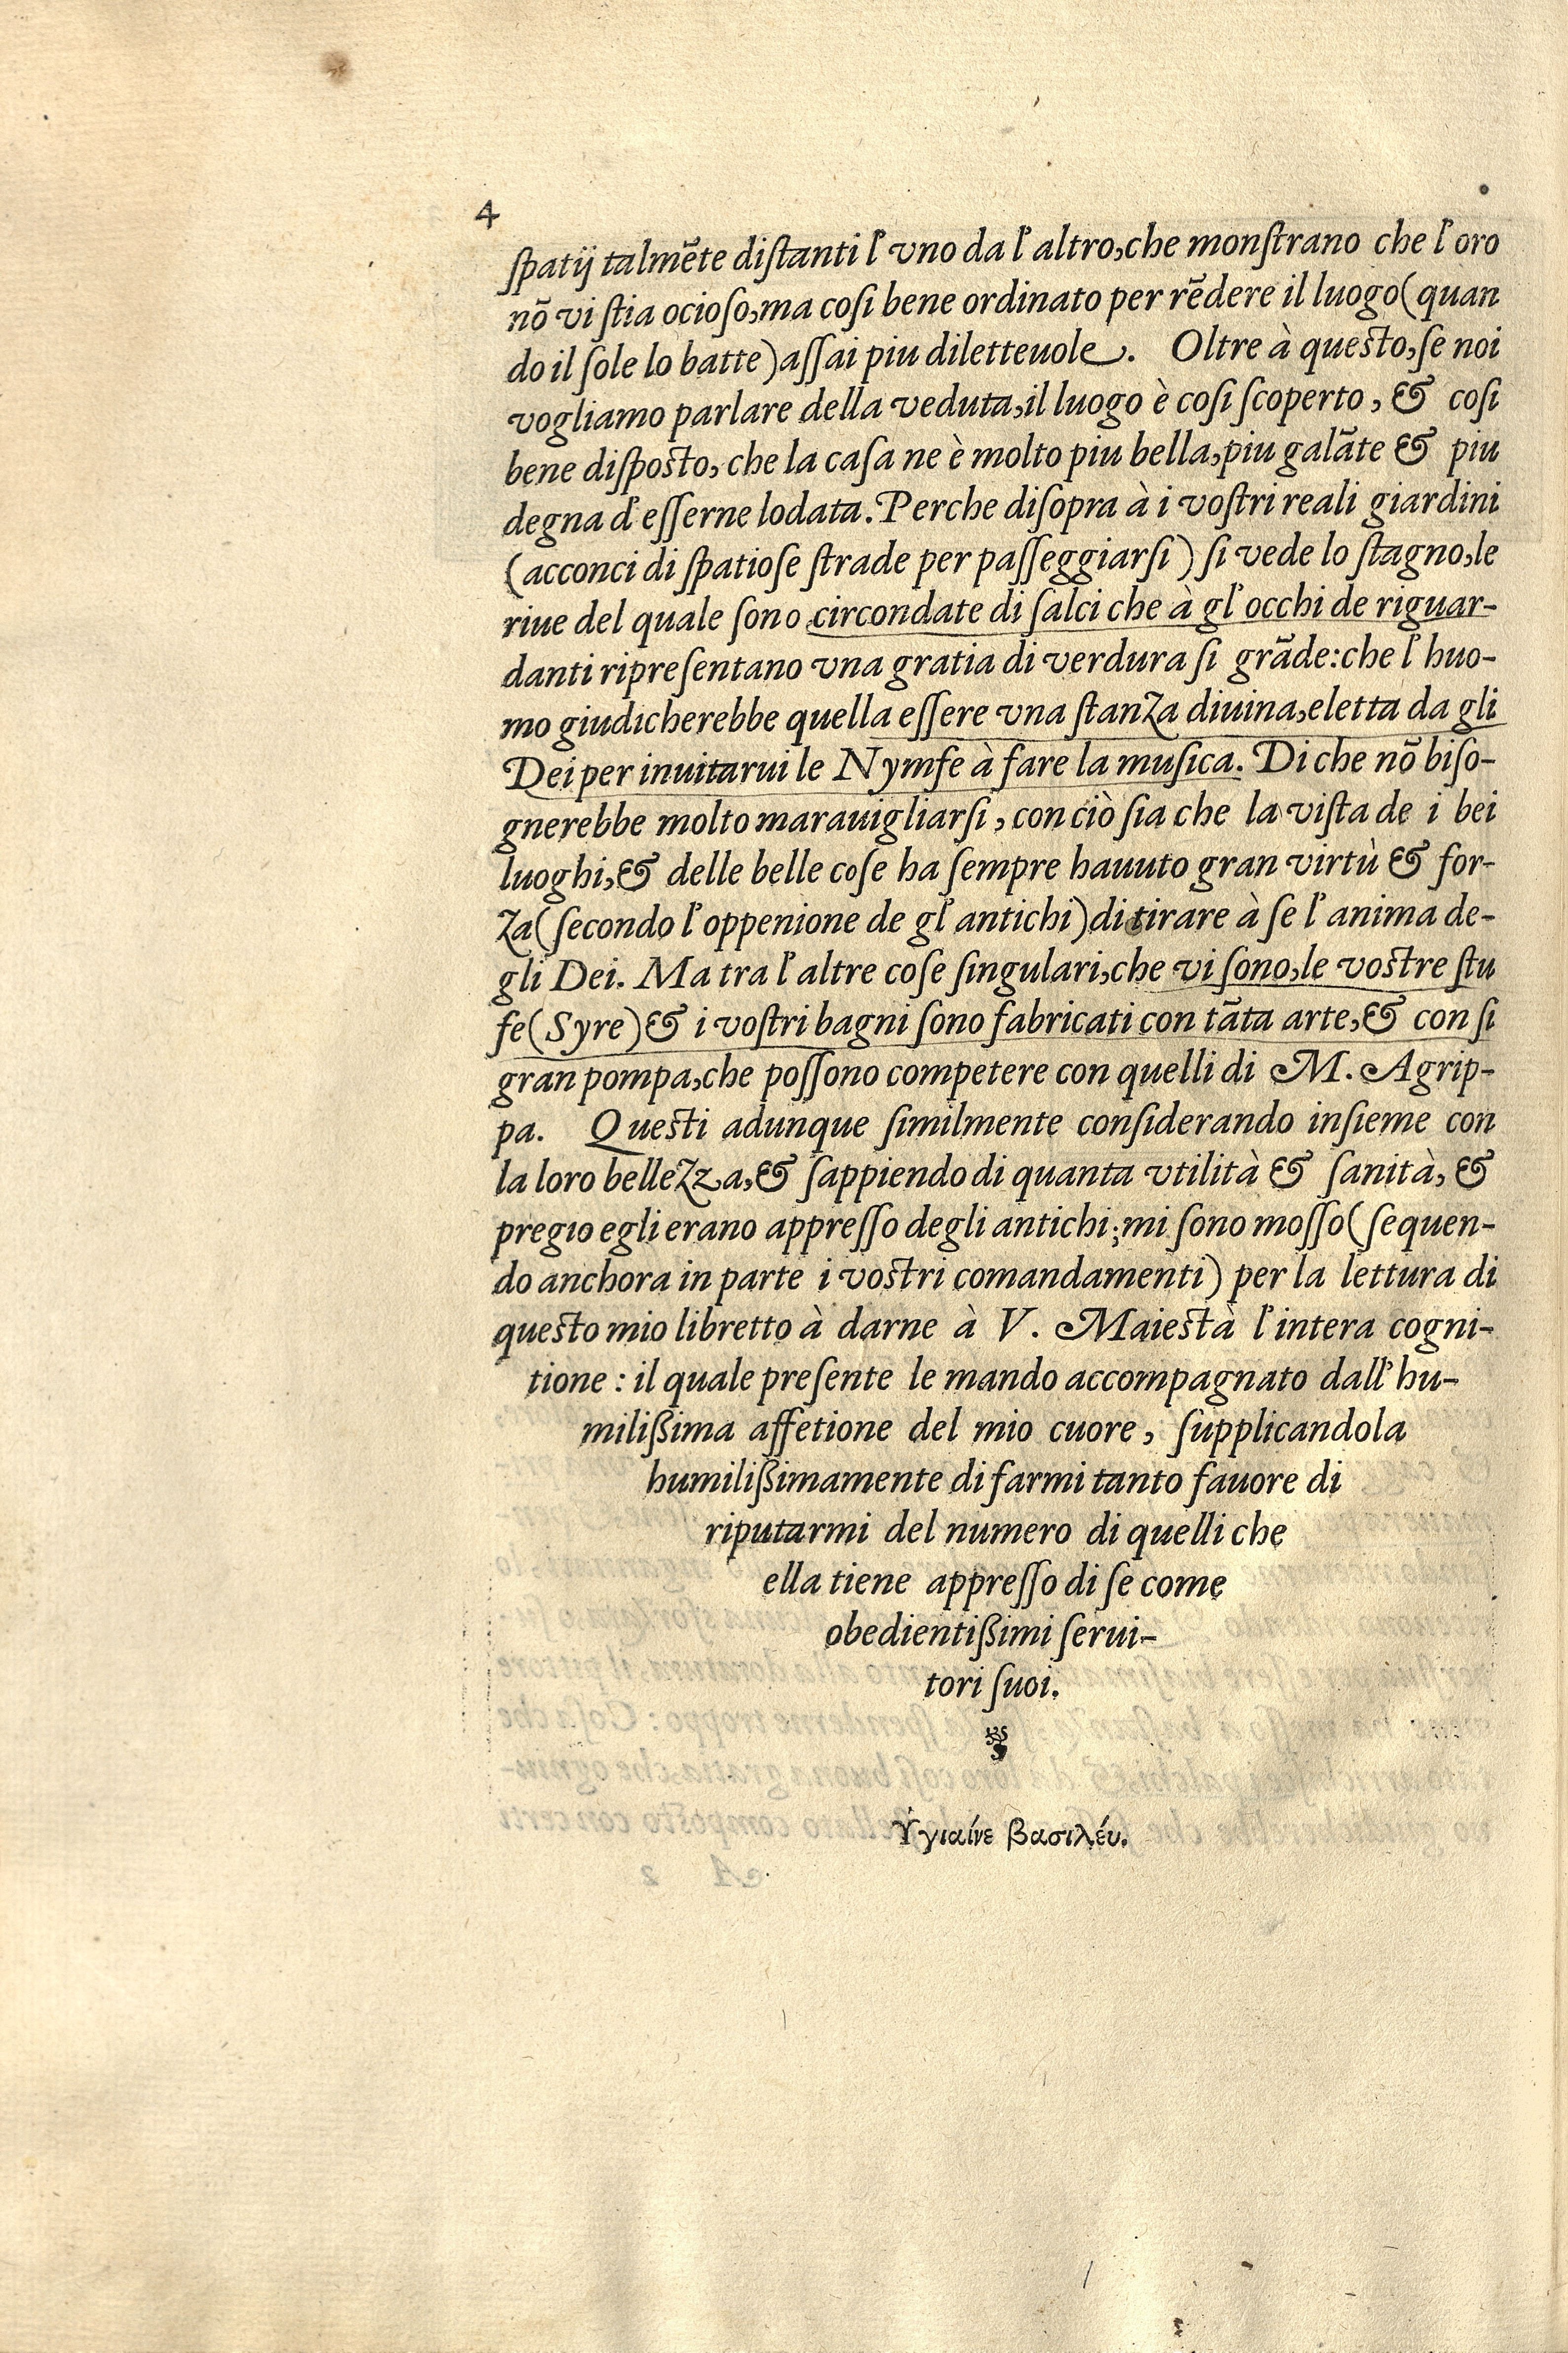 4
ſpatij talmẽte diſtanti l'vno da l'altro, che monſtrano che l'oro
nõ vi ſtia ocioſo, ma coſi bene ordinato per rẽdere il luogo (quan
do il ſole lo batte) aſſai piu diletteuole. Oltre à queſto, ſe noi
vogliamo parlare della veduta, il luogo è coſi ſcoperto, & coſi
bene diſpoſto, che la caſa ne è molto piu bella, piu galãte & piu
degna d'eſſerne lodata. Perche diſopra à i voſtri reali giardini
(acconci di ſpatioſe ſtrade per paſſeggiarſi) ſi vede lo ſtagno, le
riue del quale ſono circondate di ſalci che à gl'occhi de riguar-
danti ripreſentano vna gratia di verdura ſi grãde: che l'huo-
mo giudicherebbe quella eſſere vna ſtanza diuina, eletta da gli
Dei per inuitarui le Nymfe à fare la muſica. Di che nõ biſo-
gnerebbe molto marauigliarſi, con ciò ſia che la viſta de i bei
luoghi, & delle belle coſe ha ſempre hauuto gran virtù & for-
za (ſecondo l'oppenione de gl'antichi) di tirare à ſe l'anima de-
gli Dei. Ma tra l'altre coſe ſingulari, che vi ſono, le voſtre ſtu
fe (Syre) & i voſtri bagni ſono fabricati con tãta arte, & con ſi
gran pompa, che poſſono competere con quelli di M. Agrip-
pa. Queſti adunque ſimilmente conſiderando inſieme con
la loro bellezza, & ſappiendo di quanta vtilità & ſanità, &
pregio egli erano appreſſo degli antichi; mi ſono moſſo (ſequen-
do anchora in parte i voſtri comandamenti) per la lettura di
queſto mio libretto à darne à V. Maieſtà l'intera cogni-
tione: il quale preſente le mando accompagnato dall'hu-
milißima affetione del mio cuore, ſupplicandola
humilißimamente di farmi tanto fauore di
riputarmi del numero di quelli che
ella tiene appreſſo di ſe come
obedientißimi ſerui-
tori ſuoi.
Ὑγιαίνε βασιλέυ.